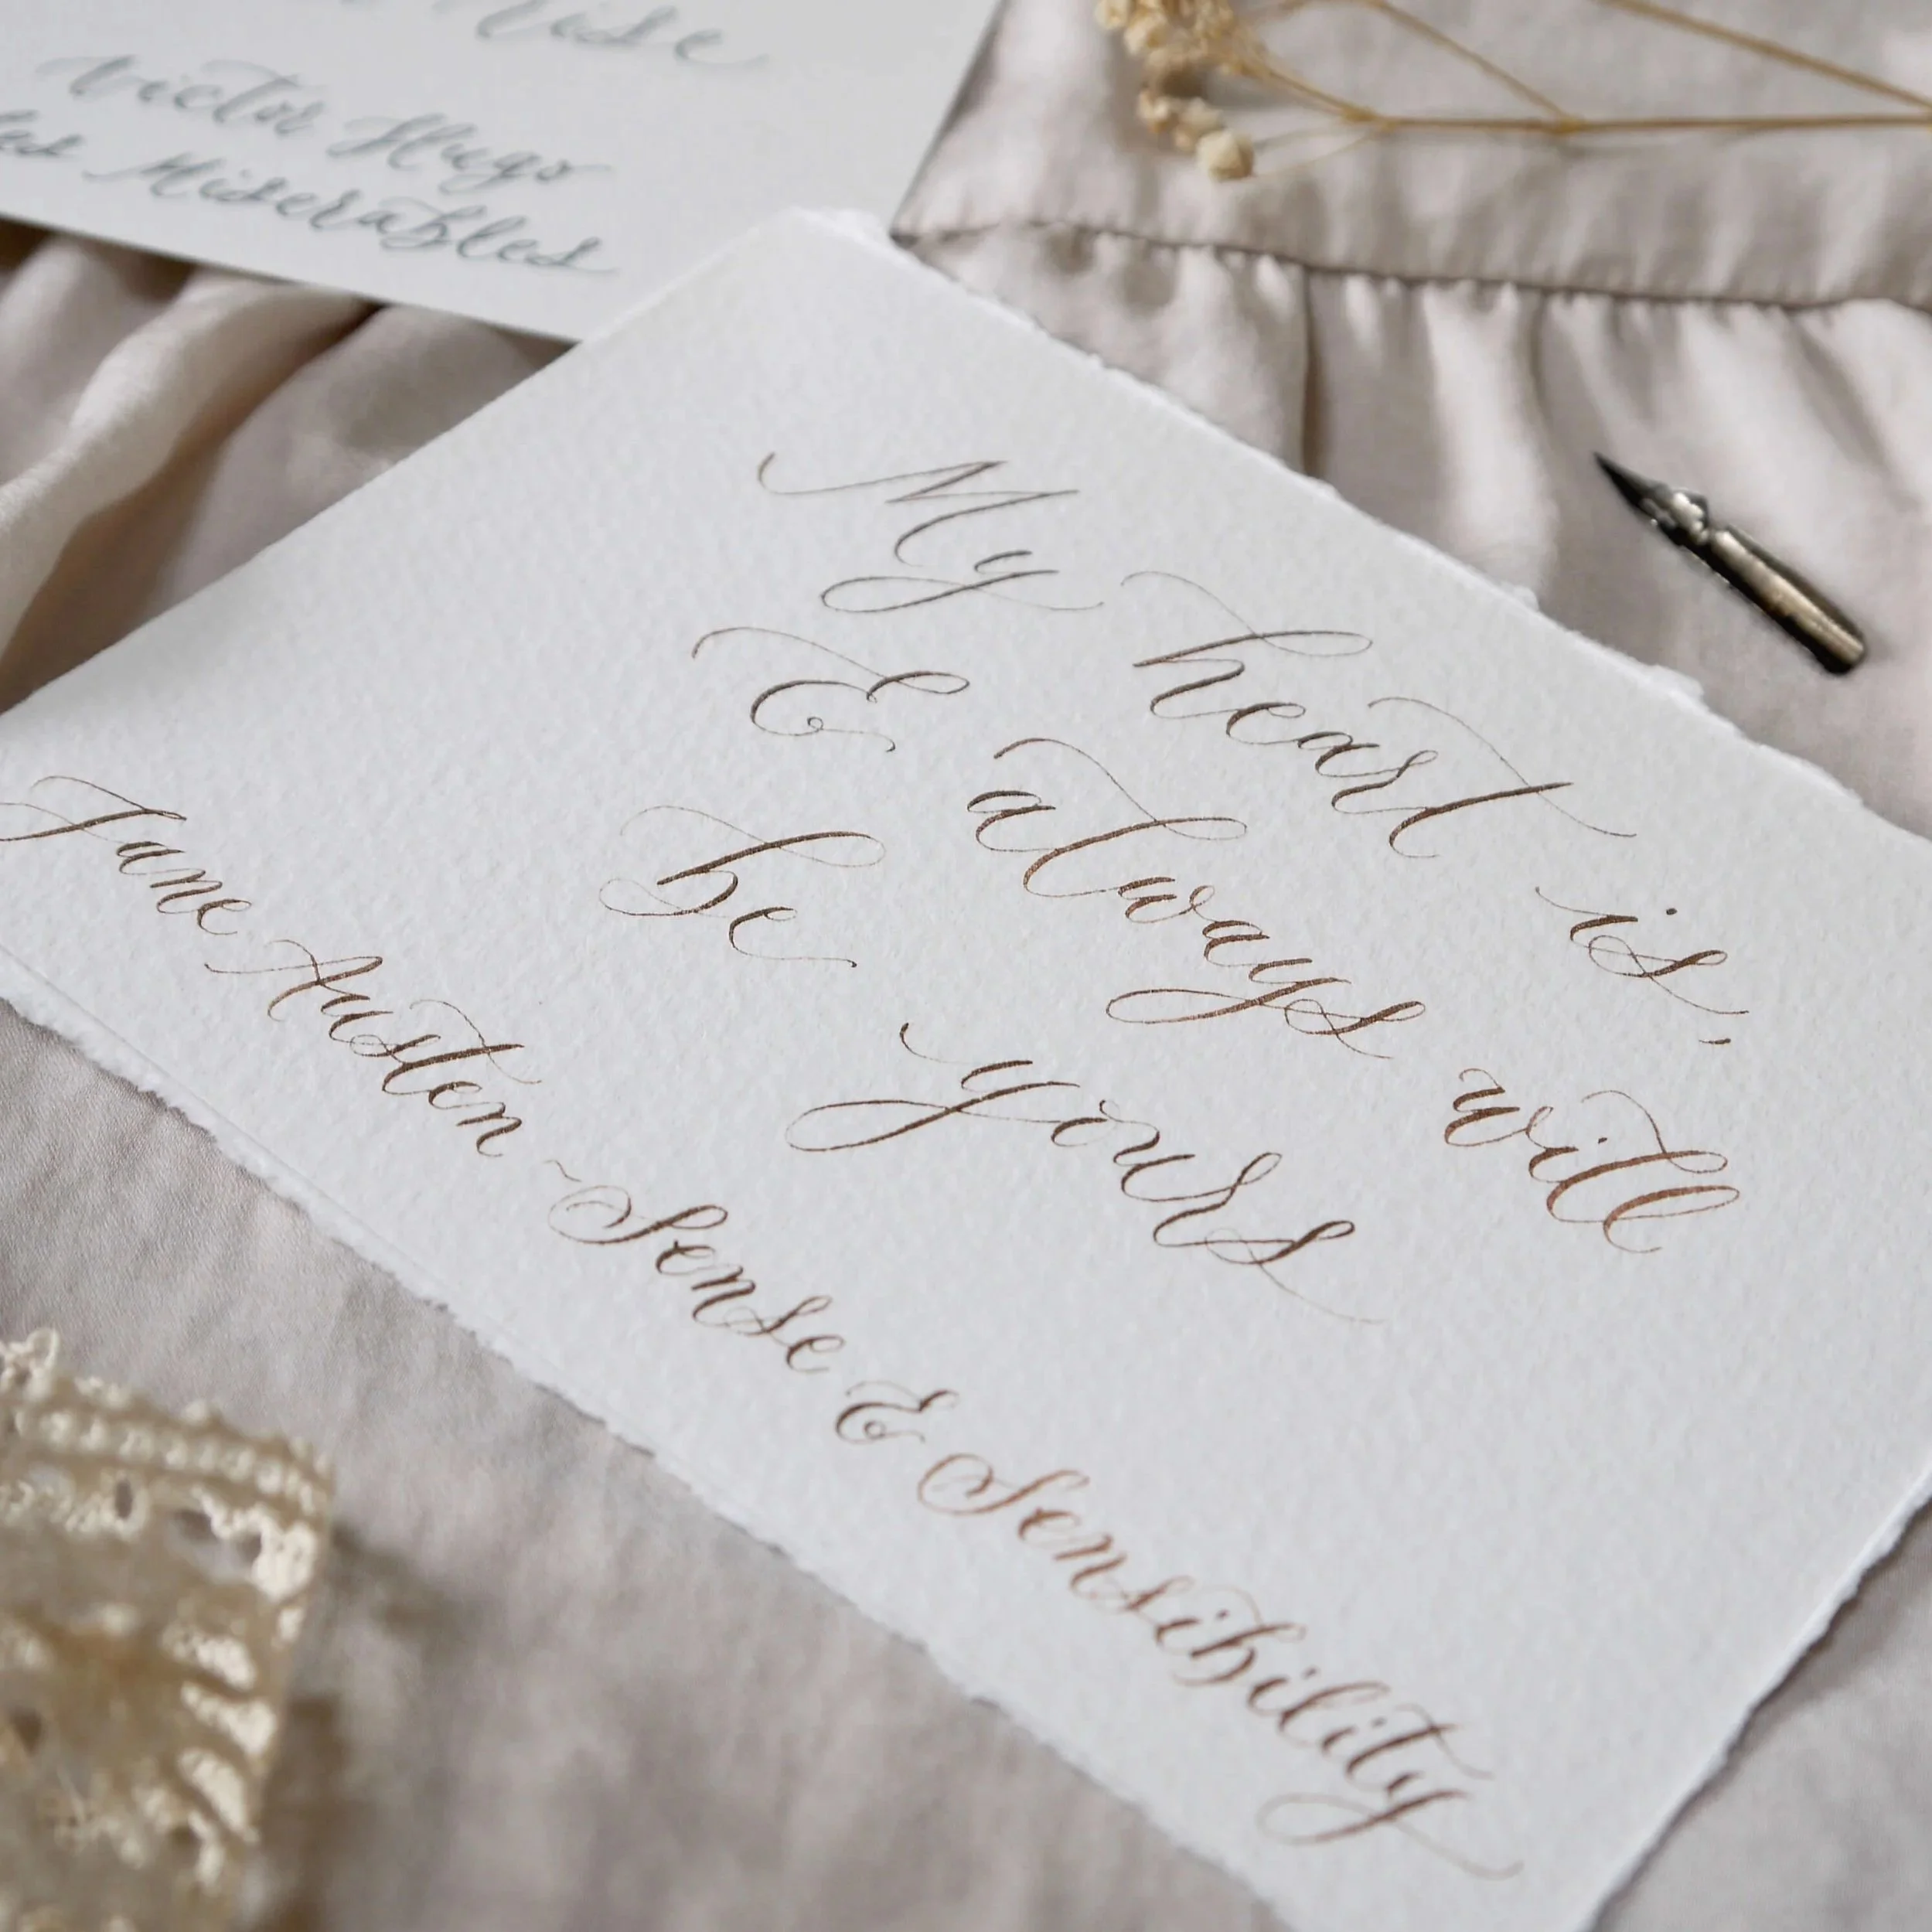 Victor Hugo
Les Miserables
My heart is,
& always will
be yours
Jane Austen ~ Sense & Sensibility